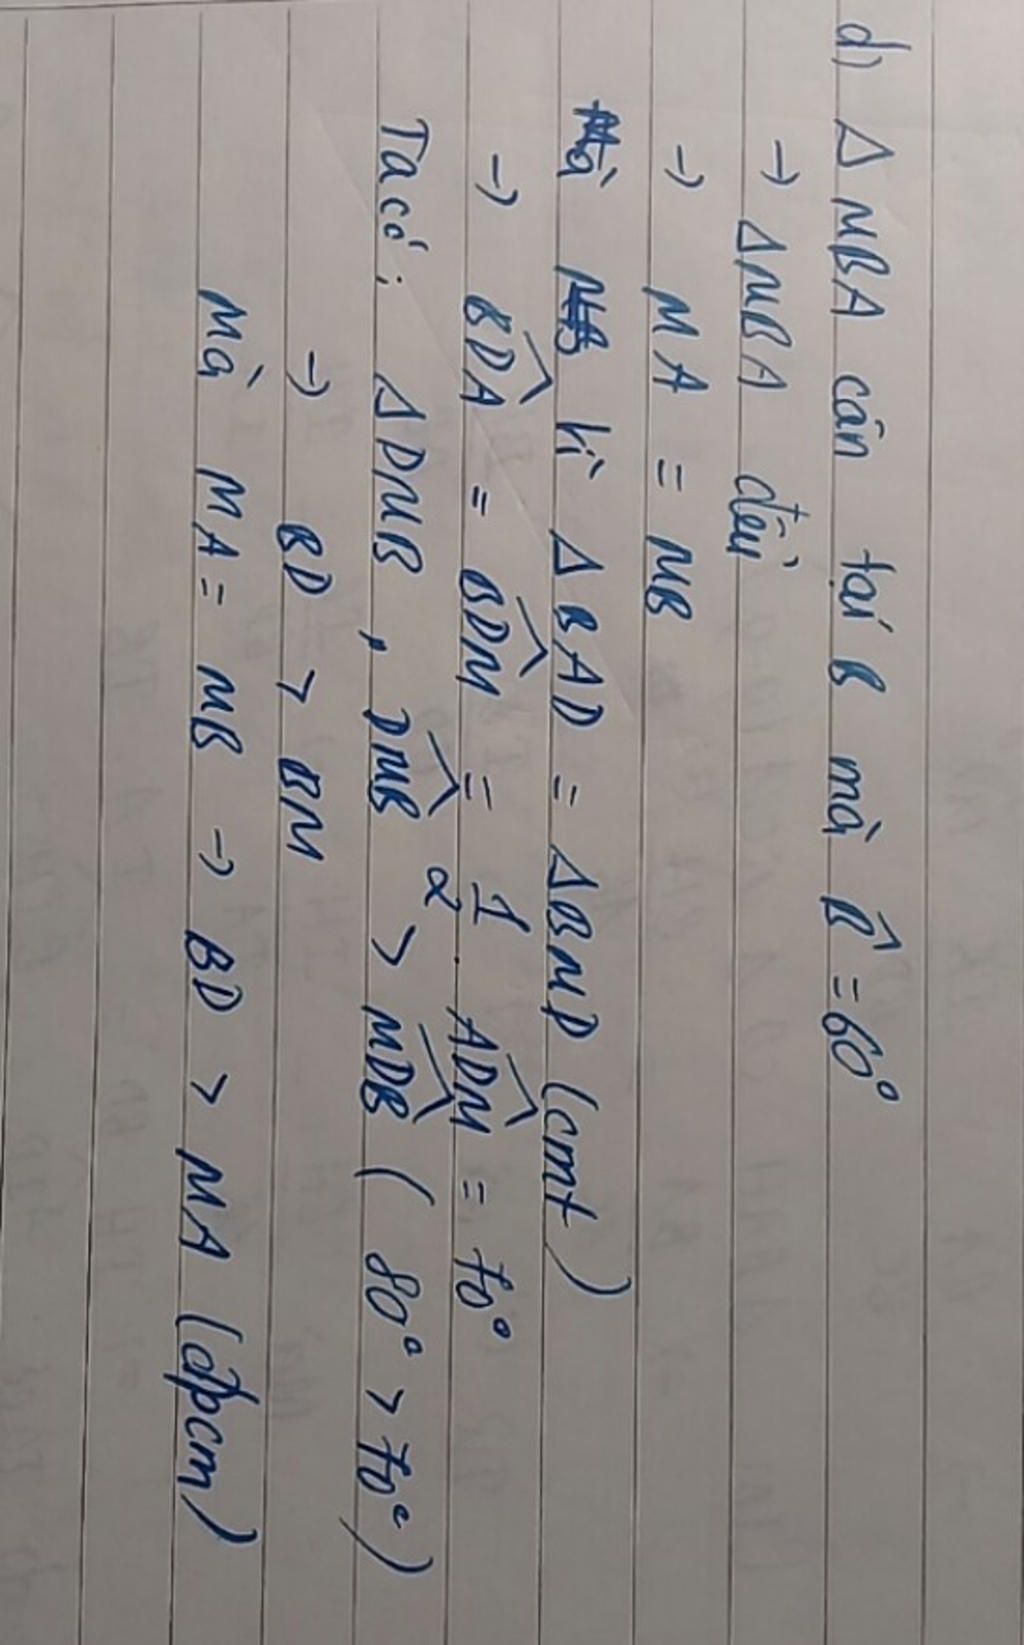 d) Δ MBA cân tại B mà B̂ = 60°
→ Δ MBA đều
→ MA = MB
Vì Δ BAD = Δ BMD (cmt)
→ BDA = BDM = 1/2 . ADM = 70°
Ta có: Δ DMB, DMB > MDB ( 80° > 70° )
→ BD > BM
Mà MA = MB → BD > MA (đpcm)